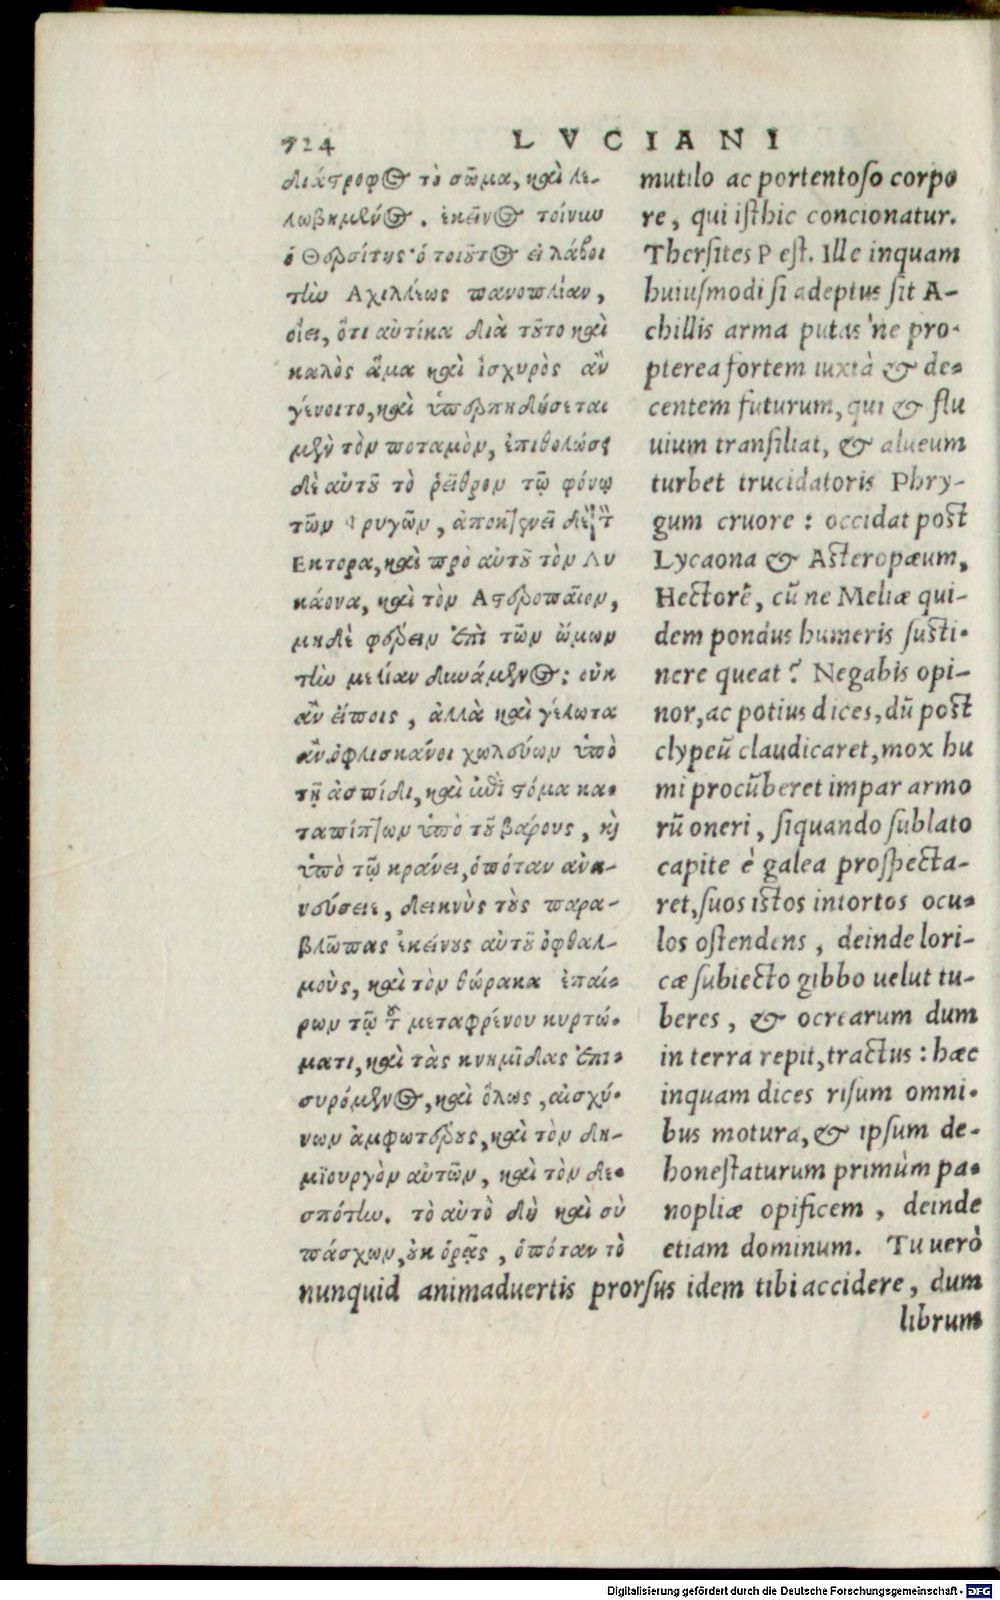 724 LVCIANI
διάστροφος τὸ σῶμα, καὶ λε-
λωβημένος. ἐκεῖνος τοίνυν
ὁ Θερσίτης ὁ τοιοῦτος εἰ λάβοι
τὴν Αχιλλέως πανοπλίαν,
οἴει, ὅτι αὐτίκα διὰ τοῦτο καὶ
καλὸς ἅμα καὶ ἰσχυρὸς ἂν
γένοιτο, καὶ ὑπερπηδήσεται
μὲν τὸν ποταμὸν, ἐπιθολώσει
δὲ αὐτοῦ τὸ ῥεῖθρον τῷ φόνῳ
τῶν Φρυγῶν, ἀποκτενεῖ δὲ τὸν
Εκτορα, καὶ πρὸ αὐτοῦ τὸν Λυ
κάονα, καὶ τὸν Αστεροπαῖον,
μηδὲ φέρειν ἐπὶ τῶν ὤμων
τὴν μελίαν δυνάμενος; οὐκ
ἂν εἴποις, ἀλλὰ καὶ γέλωτα
ἂν ὀφλισκάνοι χωλεύων ὑπὸ
τῇ ἀσπίδι, καὶ ἐπὶ στόμα κα-
ταπίπτων ὑπὸ τοῦ βάρους, καὶ
ὑπὸ τῷ κράνει, ὁπόταν ἀνα-
νεύσειε, δεικνὺς τοὺς παρα-
βλῶπας ἐκείνους αὐτοῦ ὀφθαλ-
μοὺς, καὶ τὸν θώρακα ἐπαί-
ρων τῷ τοῦ μεταφρένου κυρτώ-
ματι, καὶ τὰς κνημῖδας ἐπι-
συρόμενος, καὶ ὅλως, αἰσχύ-
νων ἀμφωτέρους, καὶ τὸν δη-
μϊουργὸν αὐτῶν, καὶ τὸν δε-
σπότην. τὸ αὐτὸ δὴ καὶ σὺ
πάσχων, οὐκ ὁρᾷς, ὁπόταν τὸ
mutilo ac portentoso corpo
re, qui isthic concionatur.
Thersites P est. Ille inquam
huiusmodi si adeptus sit A-
chillis arma putas'ne pro-
pterea fortem iuxtà & de-
centem futurum, qui & flu
uium transiliat, & alueum
turbet trucidatoris Phry-
gum cruore: occidat post
Lycaona & Asteropæum,
Hectorẽ, cũ ne Meliæ qui-
dem pondus humeris susti-
nere queat? Negabis opi-
nor, ac potius dices, dũ post
clypeũ claudicaret, mox hu
mi procũberet impar armo
rũ oneri, siquando sublato
capite è galea prospecta-
ret, suos istos intortos ocu-
los ostendens, deinde lori-
cæ subiecto gibbo uelut tu-
beres, & ocrearum dum
in terra repit, tractus: hæc
inquam dices risum omni-
bus motura, & ipsum de-
honestaturum primùm pa-
nopliæ opificem, deinde
etiam dominum. Tu uerò
nunquid animaduertis prorsus idem tibi accidere, dum
librum
Digitalisierung gefördert durch die Deutsche Forschungsgemeinschaft - DFG